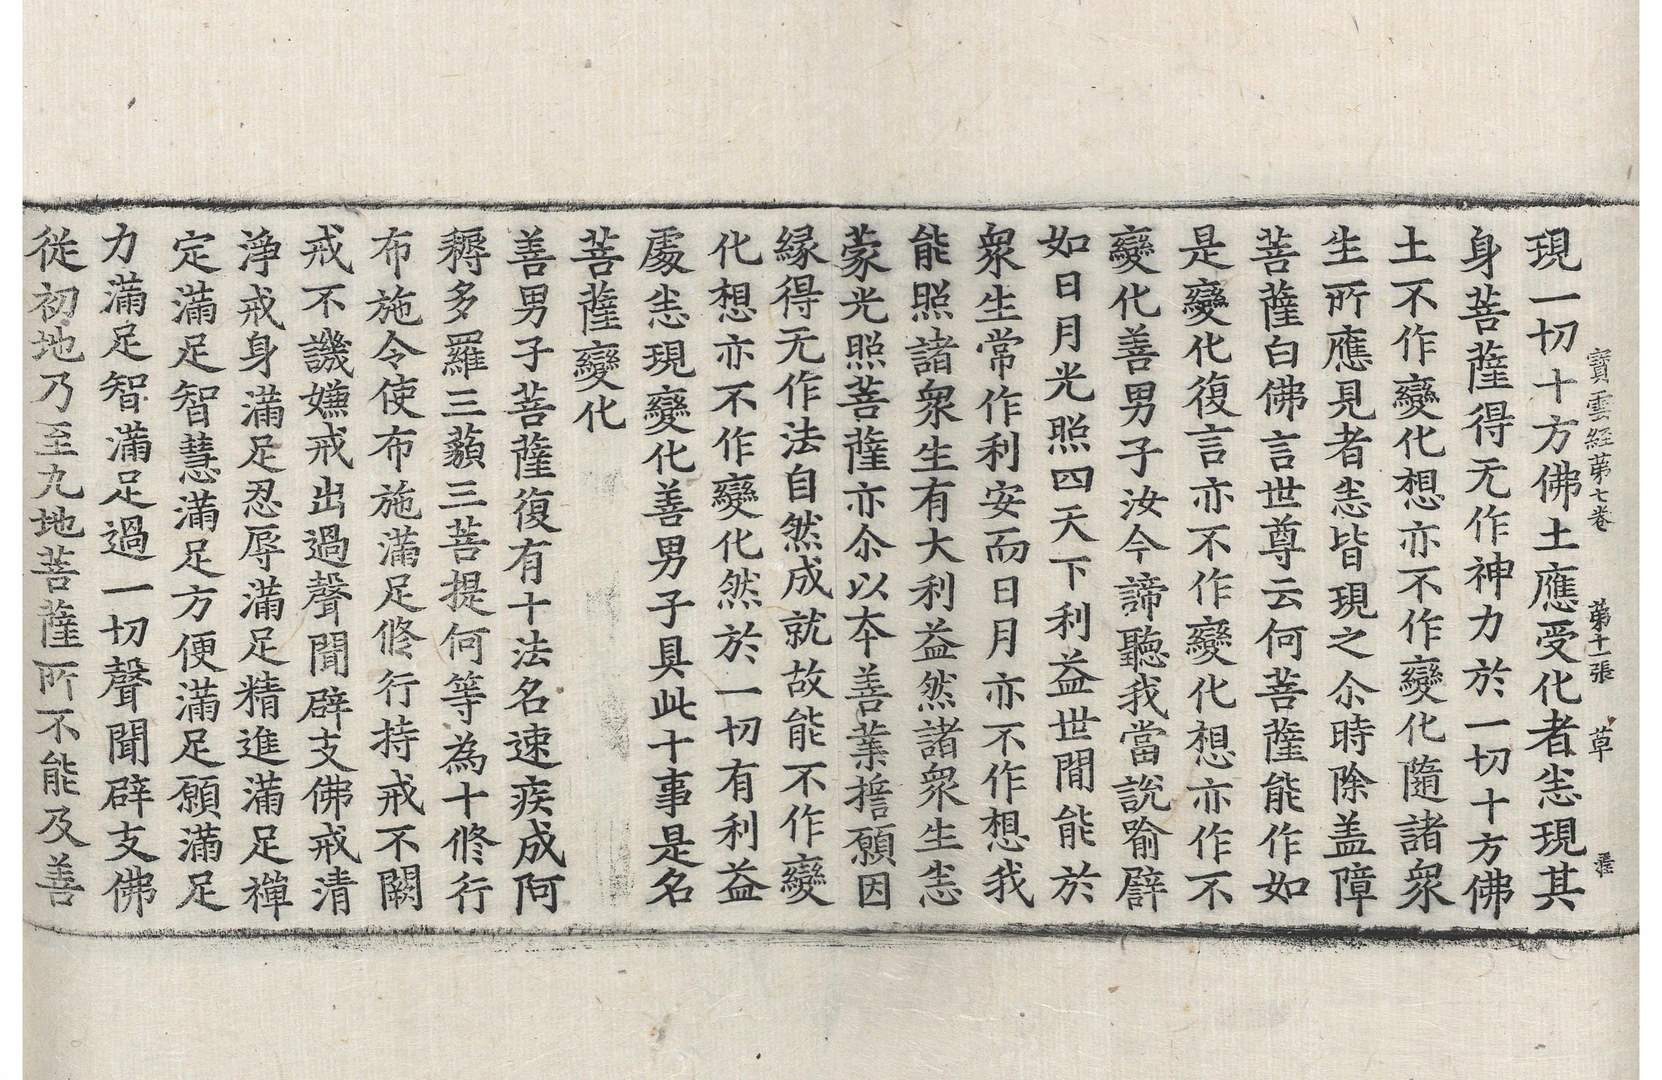 寶雲経第七卷　第十一張　草
現一切十方佛土應受化者恙現其
身菩薩得无作神力於一切十方佛
土不作變化想亦不作變化隨諸衆
生所應見者恙皆現之尒時除盖障
菩薩白佛言世尊云何菩薩能作如
是變化復言亦不作變化想亦作不
變化善男子汝今諦聽我當說喻譬
如日月光照四天下利益世間能於
衆生常作利安而日月亦不作想我
能照諸衆生有大利益然諸衆生恙
蒙光照菩薩亦尒以本善業誓願因
緣得无作法自然成就故能不作變
化想亦不作變化然於一切有利益
處恙現變化善男子具此十事是名
菩薩變化
善男子菩薩復有十法名速疾成阿
耨多羅三藐三菩提何等為十修行
布施令使布施滿足修行持戒不闕
戒不譏嫌戒出過聲聞辟支佛戒清
淨戒身滿足忍辱滿足精進滿足禪
定滿足智慧滿足方便滿足願滿足
力滿足智滿足過一切聲聞辟支佛
從初地乃至九地菩薩所不能及善